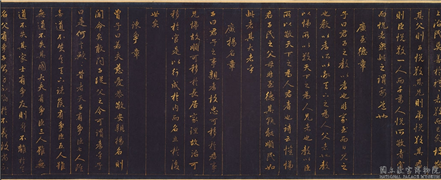 則子悅敬其兄則弟悅敬其君
則臣悅敬一人而千萬人悅所敬者寡
而悅者眾此之謂要道也
廣至德章
子曰君子之教以孝也非家至而日見之
也教以孝所以敬天下之為人父者也教
以悌所以敬天下之為人兄者也教以臣
所以敬天下之為人君者也詩云愷悌
君子民之父母非至德其孰能順民如
此其大者乎
廣揚名章
子曰君子之事親孝故忠可移於君事
兄悌故順可移於長居家理故治可
移於官是以行成於內而名立於後
世矣
諫諍章
曾子曰若夫慈愛恭敬安親揚名則
聞命矣敢問子從父之令可謂孝乎子
曰是何言與昔者天子有爭臣七人雖
無道不失天下諸侯有爭臣五人雖
無道不失其國大夫有爭臣三人雖無
道不失其家士有爭友則身不離於
國立故宮博物院
NATIONAL PALACE MUSEUM